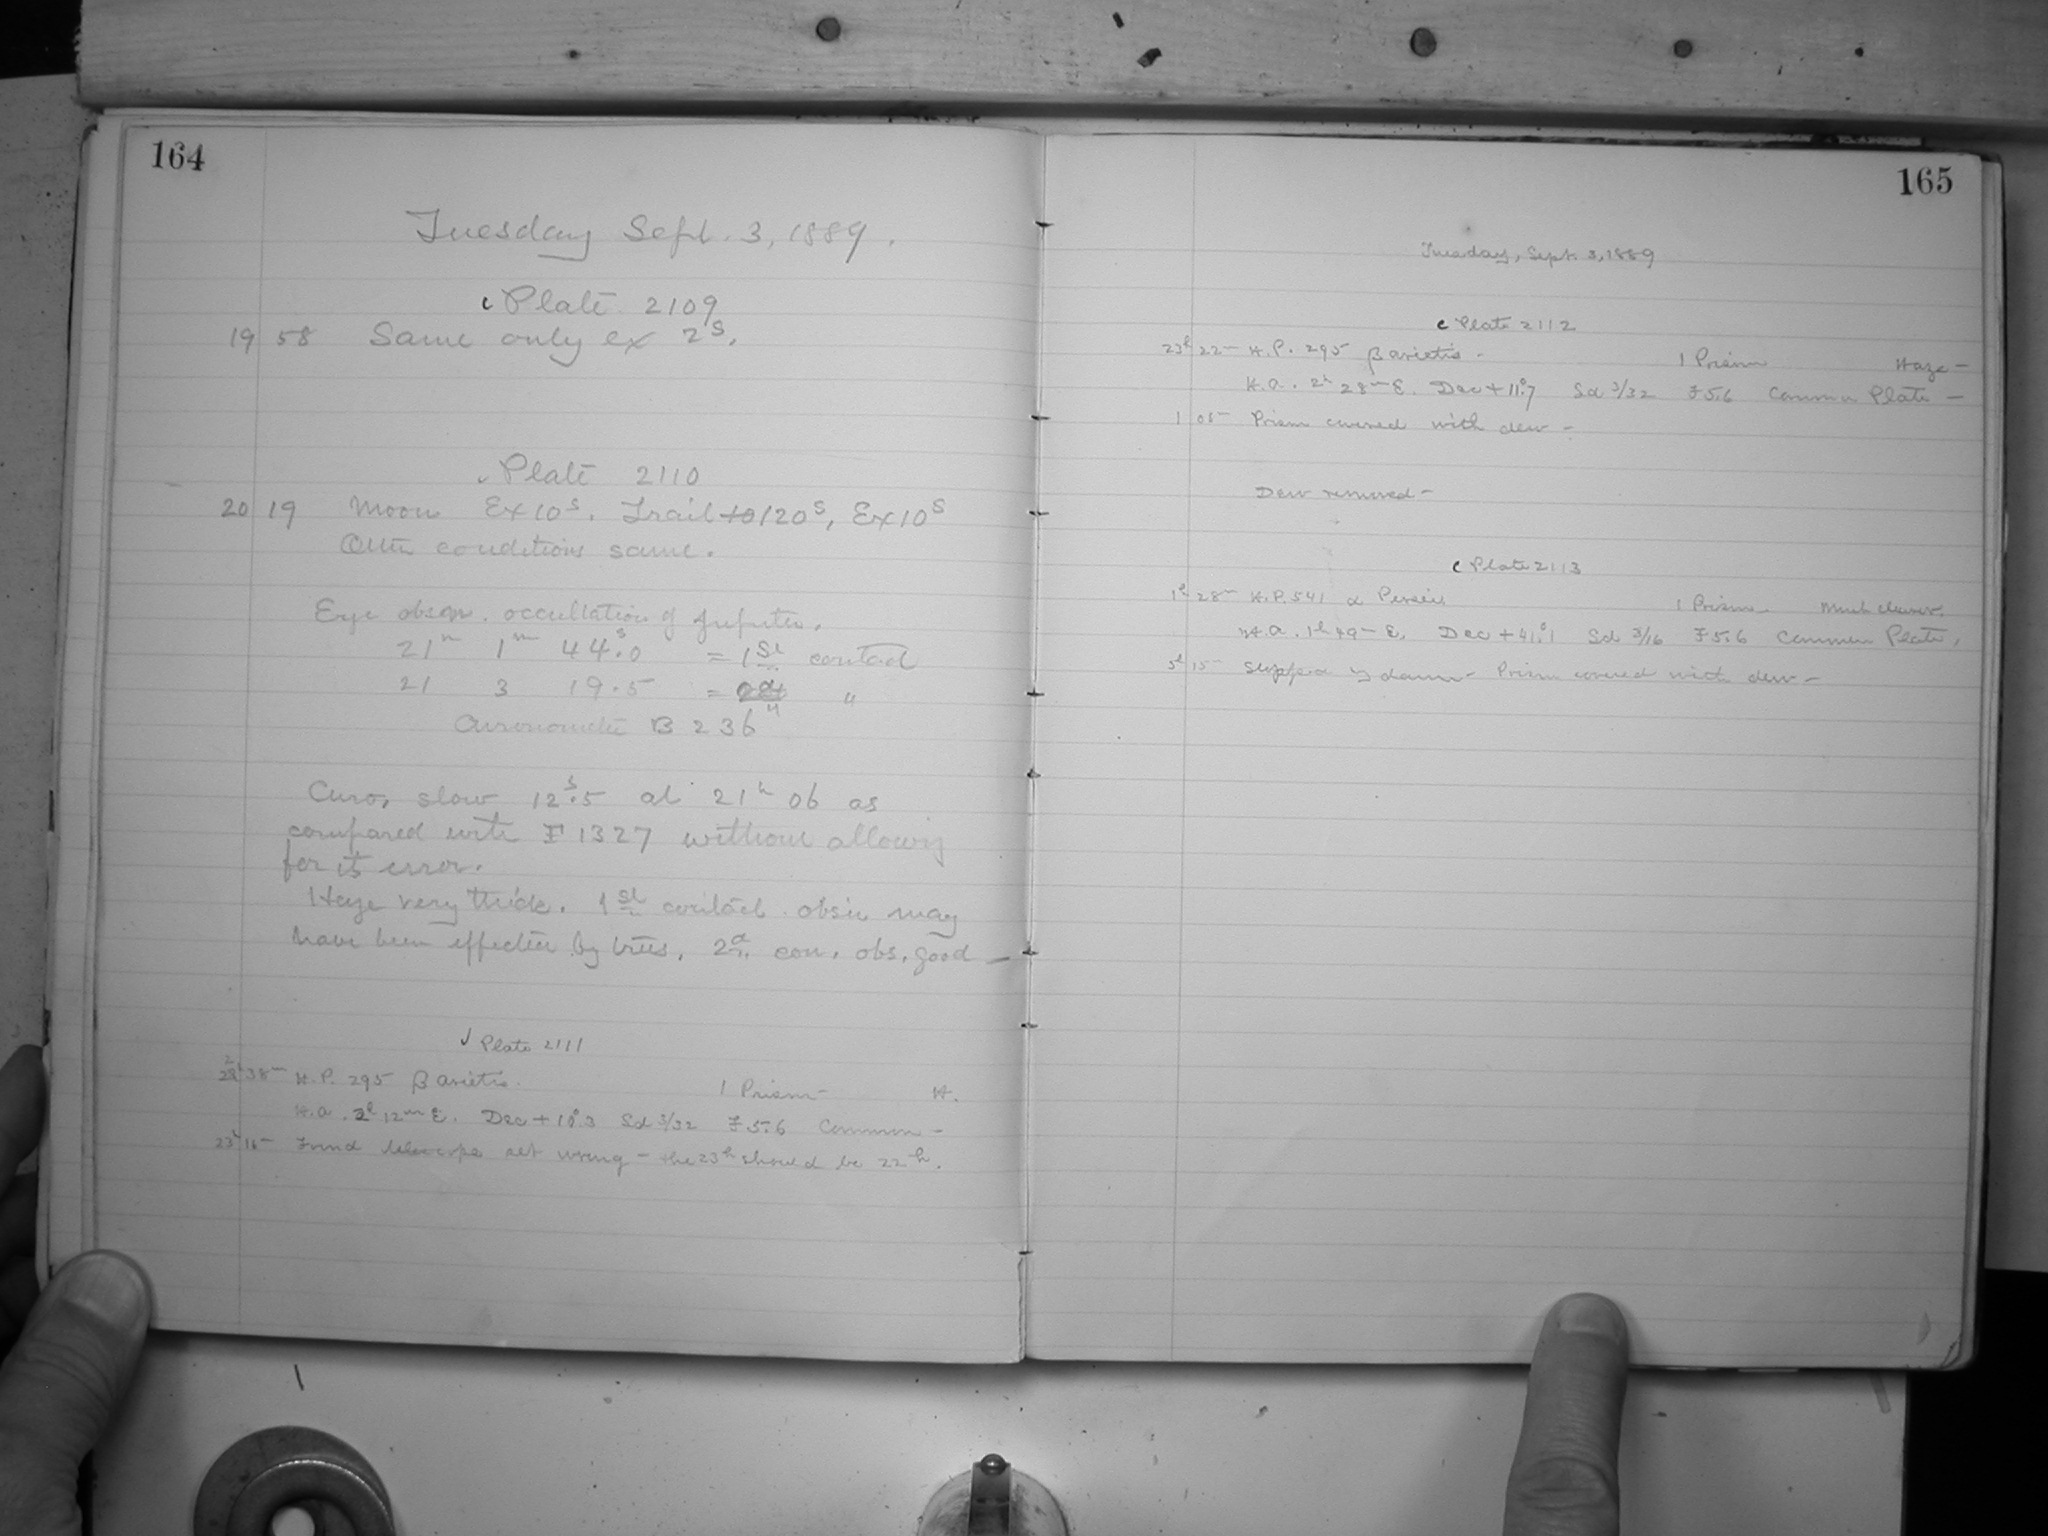 164
Tuesday Sept. 3, 1889.
c Plate 2109
19 58 Same only ex 2s.
Plate 2110
20 19 Moon Ex 10s. Trail 120s, Ex 10s
Other conditions same.
Eye obsn. occultation of Jupiter.
21h 1m 44.0s = 1st contact
21 3 19.5 = 2d "
Chronometer B 236
Chro. slow 12s.5 at 21h 06 as
compared with F 1327 without allowing
for its error.
Haze very thick. 1st contact obsn may
have been effected by trees. 2d con. obs. good —
✓ Plate 2111
38m H.P. 295 β arietis. 1 Prism – H.
H.a. 2h 12m E. Dec + 10°.3 Sd 3/32 F 5.6 Common –
23h 16– Found telescope set wrong – the 23h should be 22h.
165
Tuesday, Sept. 3, 1889
c Plate 2112
23h 22– H.P. 295 β arietis – 1 Prism Haze –
H.a. 2h 28m E. Dec + 11°.7 Sd 3/32 F 5.6 Common Plate –
1 05– Prism covered with dew –
Dew removed –
c Plate 2113
1h 28m H.P. 541 α Persei, 1 Prism – Much clearer.
H.a. 1h 49– E. Dec + 41°.1 Sd 3/16 F 5.6 Common Plate,
5h 15– Stopped by dawn – Prism covered with dew –